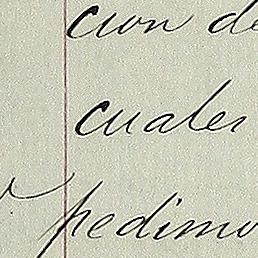 cion de
cuales
pedimo